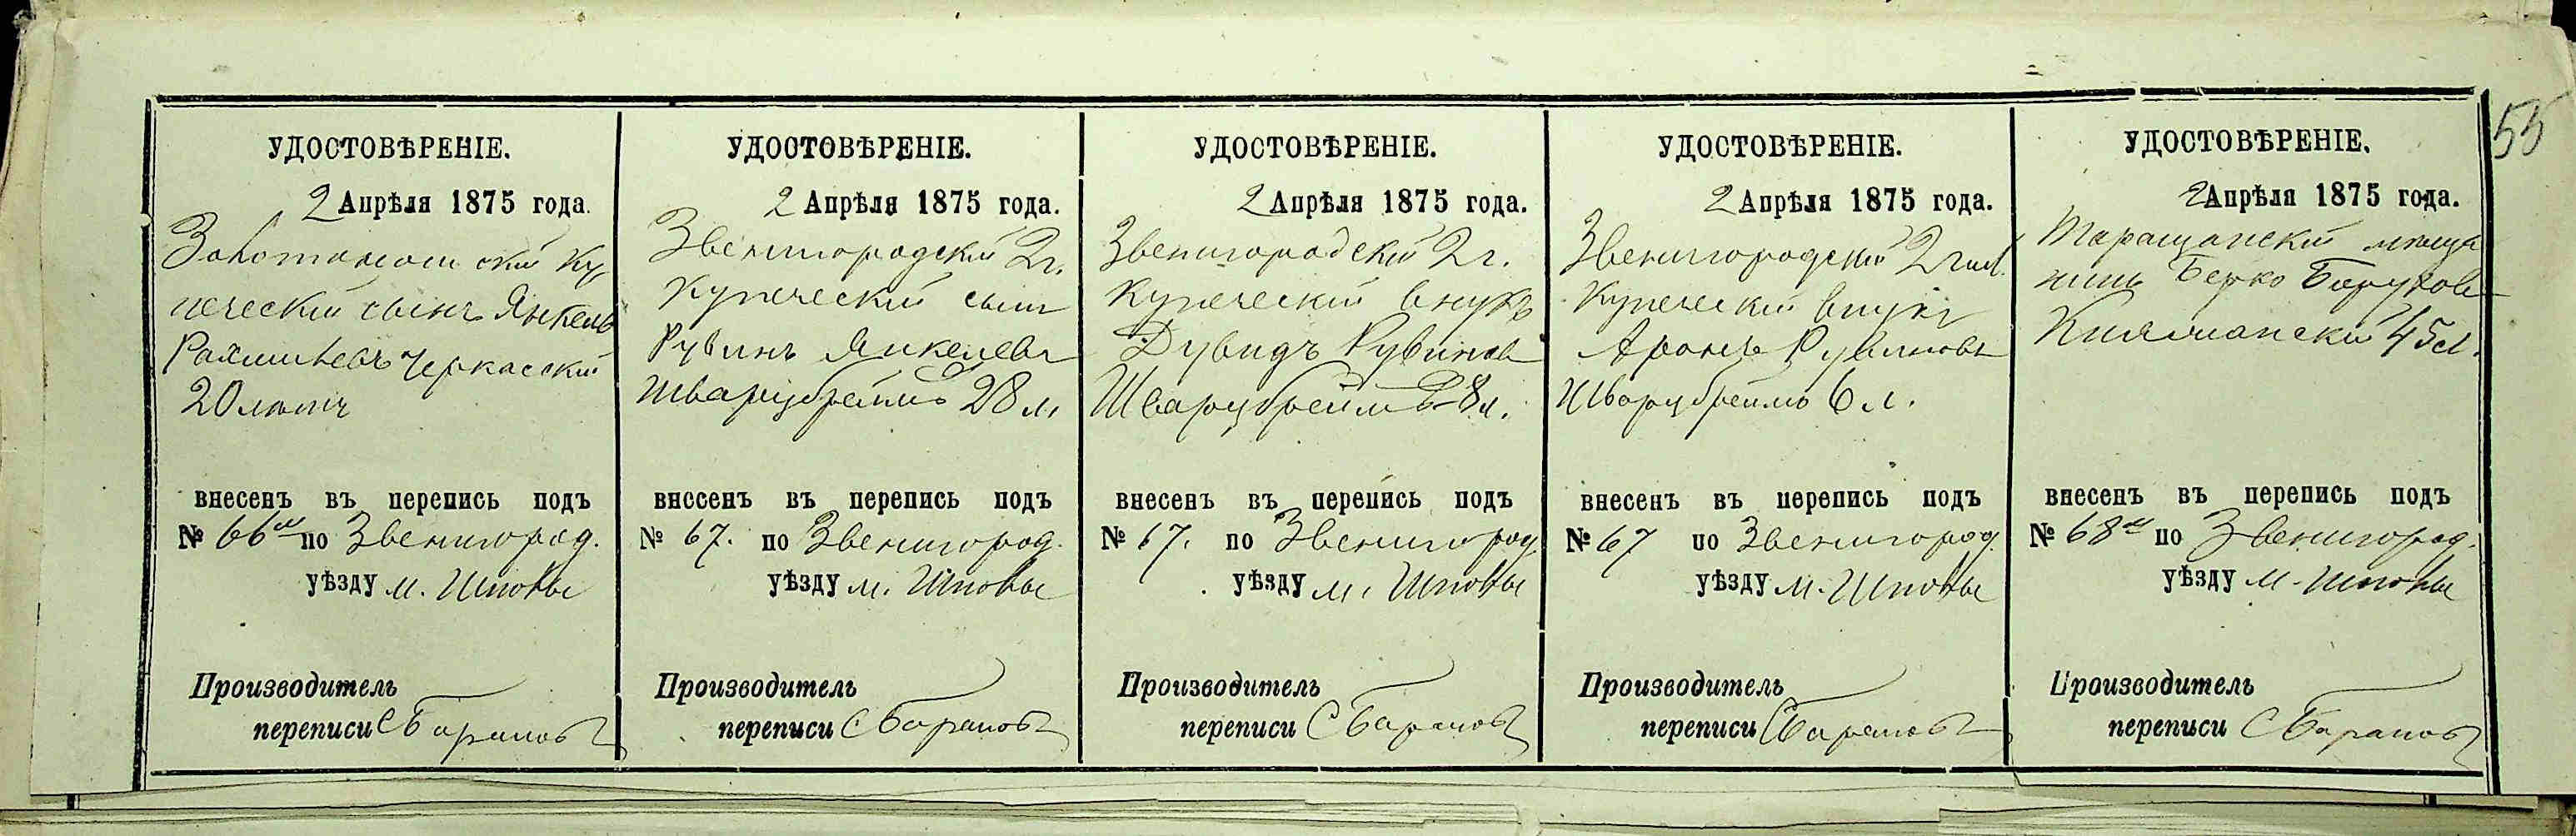 55
УДОСТОВѢРЕНІЕ.
2 Апрѣля 1875 года.
Золотоношский ку
печеский сынъ Янкель
Рахмилевъ Черкасский
20 летъ
внесенъ въ перепись подъ
№ 66 по Звенигород.
уѣзду м. Шполы
Производитель
переписи С Барановъ
УДОСТОВѢРЕНІЕ.
2 Апрѣля 1875 года.
Звенигородский 2 г.
Купеческий сынъ
Рувинъ Янкелевъ
Шварцбреймъ 28 л.
внесенъ въ перепись подъ
№ 67. по Звенигород.
уѣзду м. Шполы
Производитель
переписи С Барановъ
УДОСТОВѢРЕНІЕ.
2 Апрѣля 1875 года.
Звенигородский 2 г.
Купеческий внукъ
Дувидъ Рувиновъ
Шварцбреймъ 8 л.
внесенъ въ перепись подъ
№ 67. по Звенигород.
уѣзду м. Шполы
Производитель
переписи С Барановъ
УДОСТОВѢРЕНІЕ.
2 Апрѣля 1875 года.
Звенигородский 2 гил.
Купеческий внукъ
Аронъ Рувиновъ
Шварцбреймъ 6 л.
внесенъ въ перепись подъ
№ 67 по Звенигород.
уѣзду м. Шполы
Производитель
переписи С Барановъ
УДОСТОВѢРЕНІЕ.
2 Апрѣля 1875 года.
Таращанский меща
нинъ Берко Баруховъ
45 л.
внесенъ въ перепись подъ
№ 68 по Звенигород.
уѣзду м. Шполы
Производитель
переписи С Барановъ